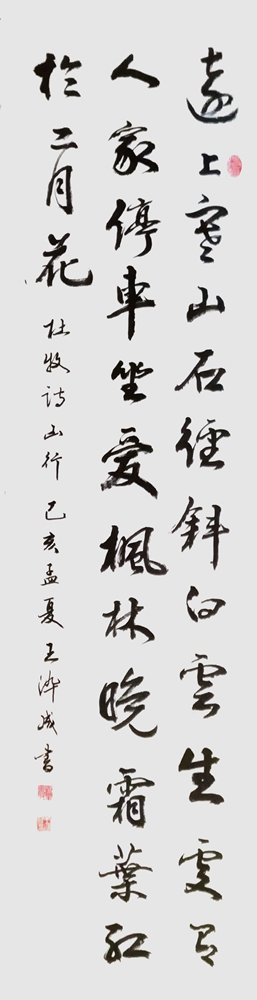 遠上寒山石徑斜白雲生處有
人家停車坐愛楓林晚霜葉紅
於二月花
杜牧詩山行 己亥孟夏 王 成書